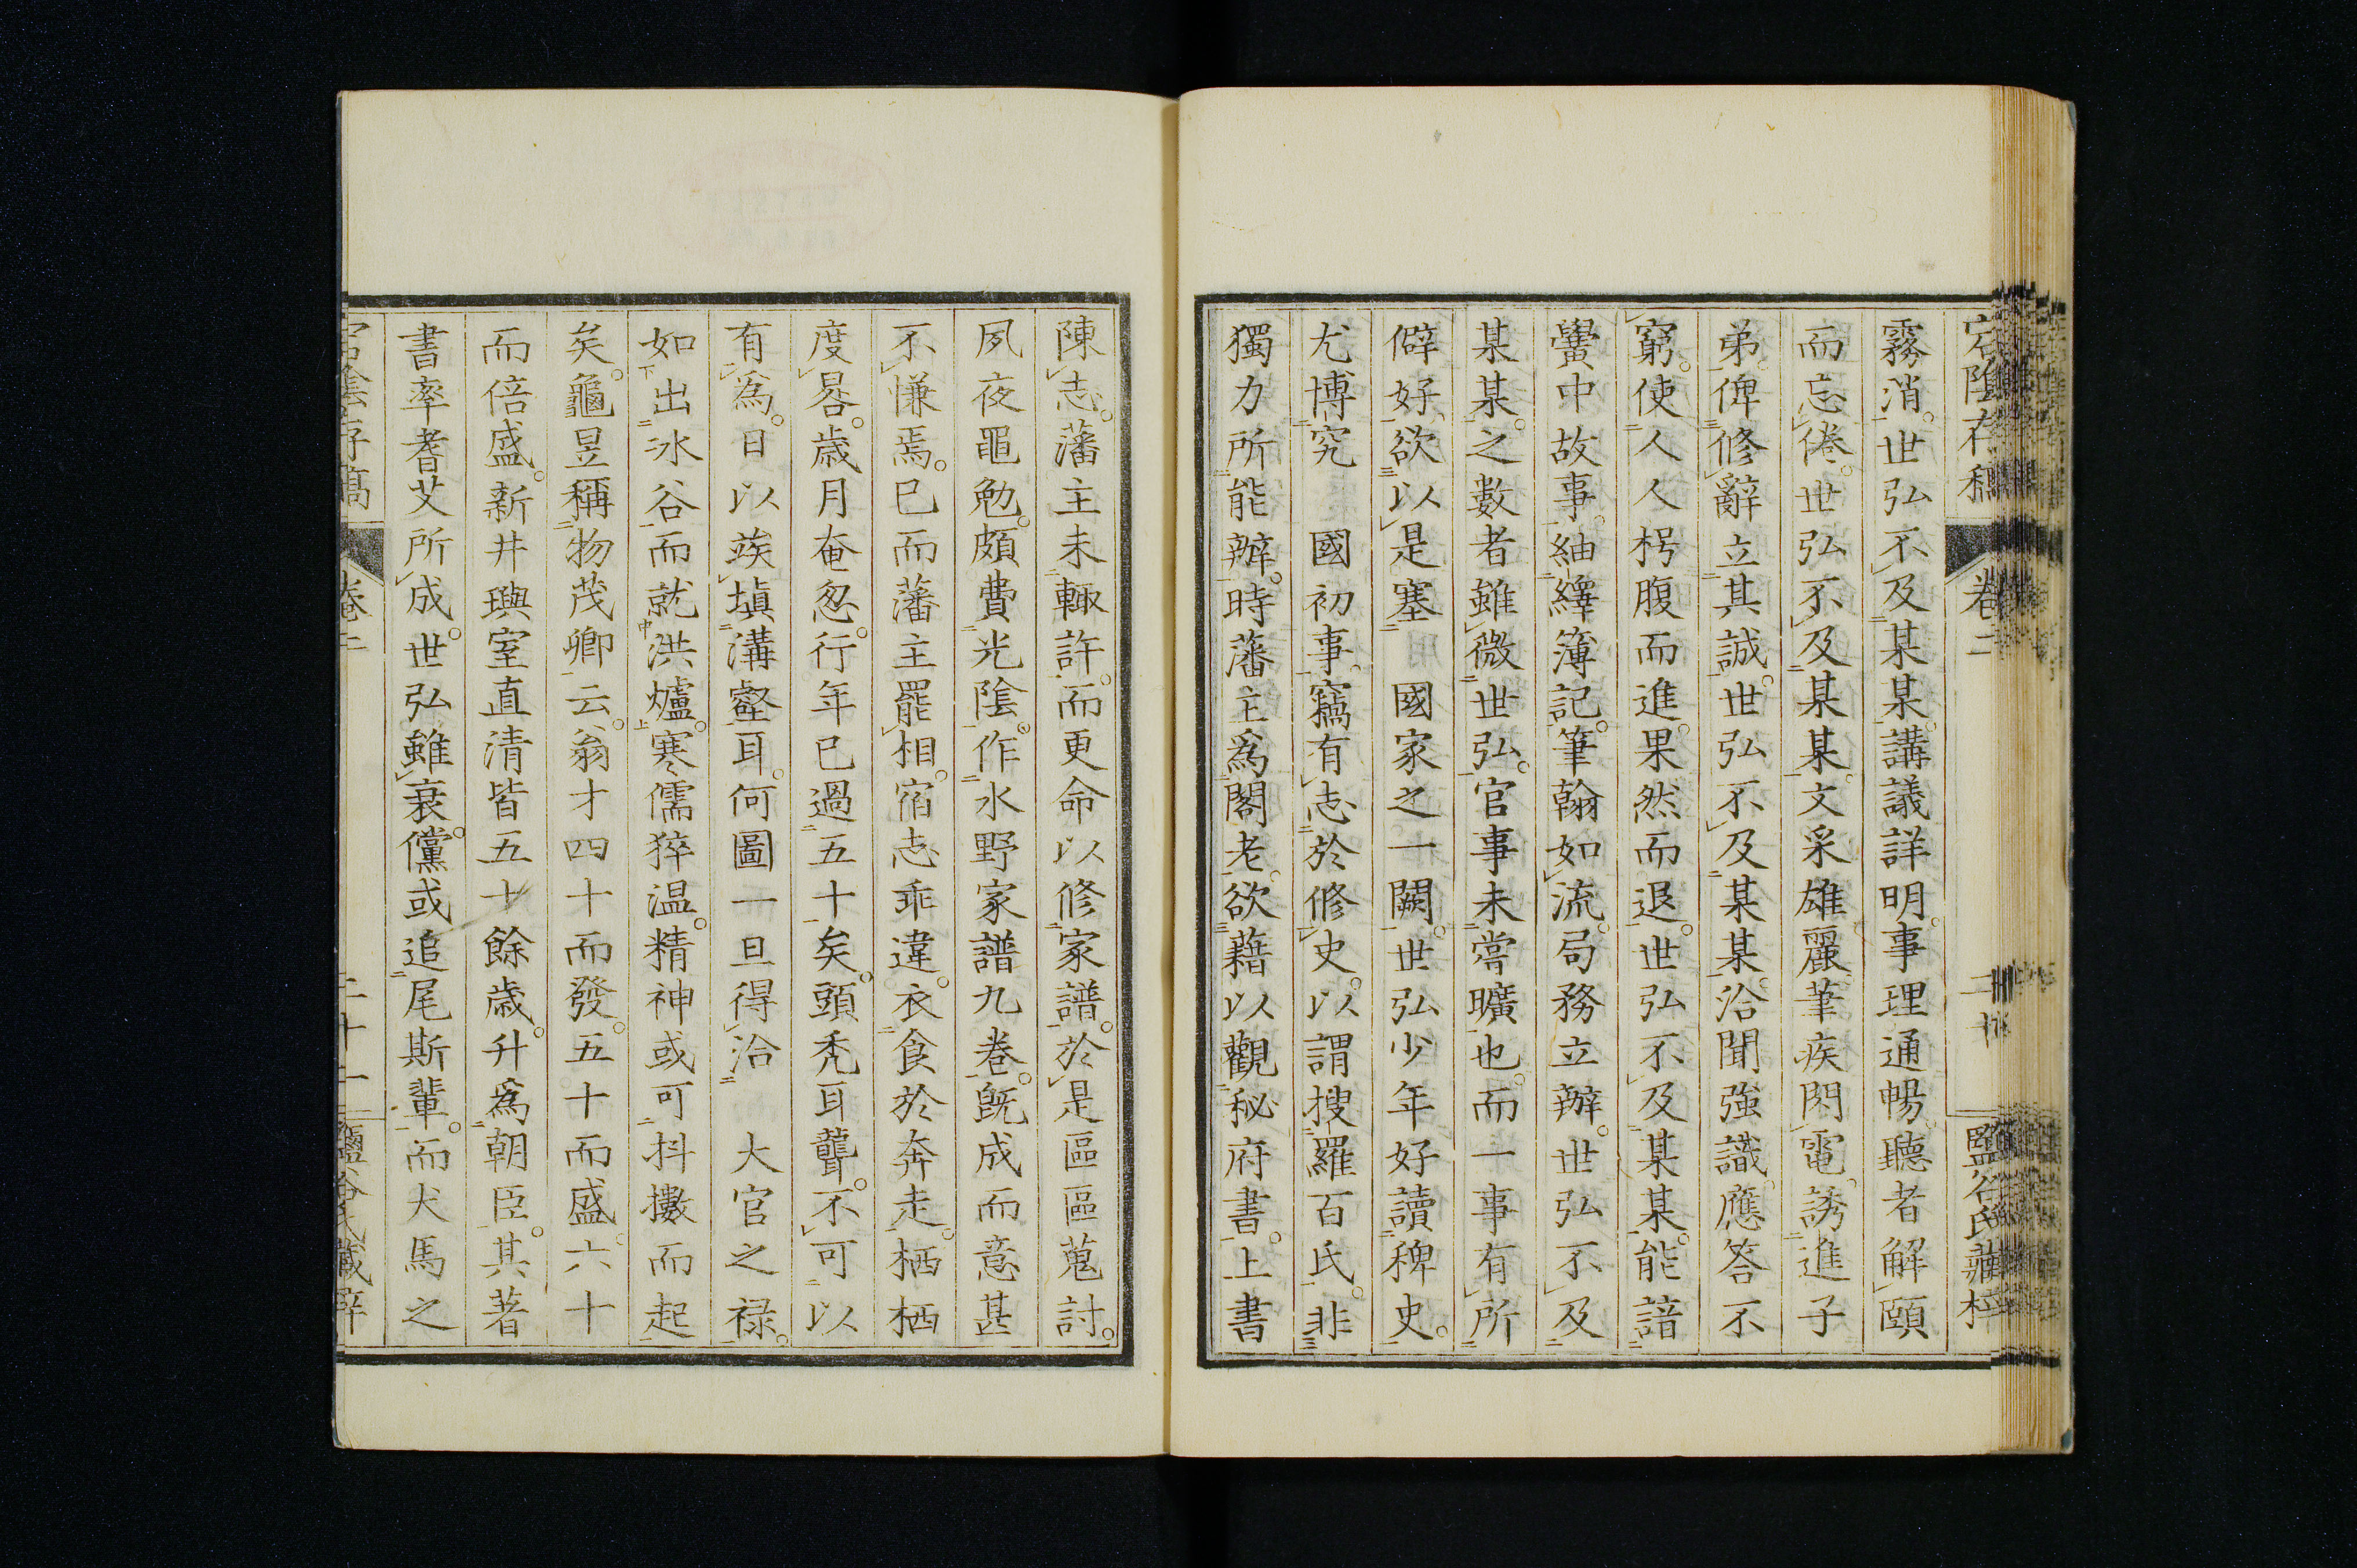 霧消。世弘不及某某。講議詳明。事理通暢。聽者解頤
而忘倦。世弘不及某某。文采雄麗。筆疾閃電。誘進子
弟。俾修辭立其誠。世弘不及某某。洽聞強識。應答不
窮。使人人枵腹而進。果然而退。世弘不及某某。能諳
黌中故事。紬繹簿記。筆翰如流。局務立辦。世弘不及
某某。之數者雖微世弘。官事未嘗曠也。而一事有所
僻好。欲以是塞 國家之一闕。世弘少年好讀稗史。
尤博究 國初事。竊有志於修史。以謂搜羅百氏。非
獨力所能辦。時藩主爲閣老。欲藉以觀秘府書。上書
陳志。藩主未輙許。而更命以修家譜。於是區區蒐討。
夙夜黽勉。頗費光陰。作水野家譜九卷。既成而意甚
不慊焉。已而藩主罷相。宿志乖違。衣食於奔走。栖栖
度晷。歲月奄忽。行年已過五十矣。頭禿耳聾。不可以
有爲。日以竢塡溝壑耳。何圖一旦得洽 大官之祿。
如出冰谷而就洪爐。寒儒猝温。精神或可抖擻而起
矣。龜昱稱物茂卿云。翁才四十而發。五十而盛。六十
而倍盛。新井璵室直清皆五十餘歲。升爲朝臣。其著
書率耆艾所成。世弘雖衰。儻或追尾斯輩。而犬馬之
卷二
二十一